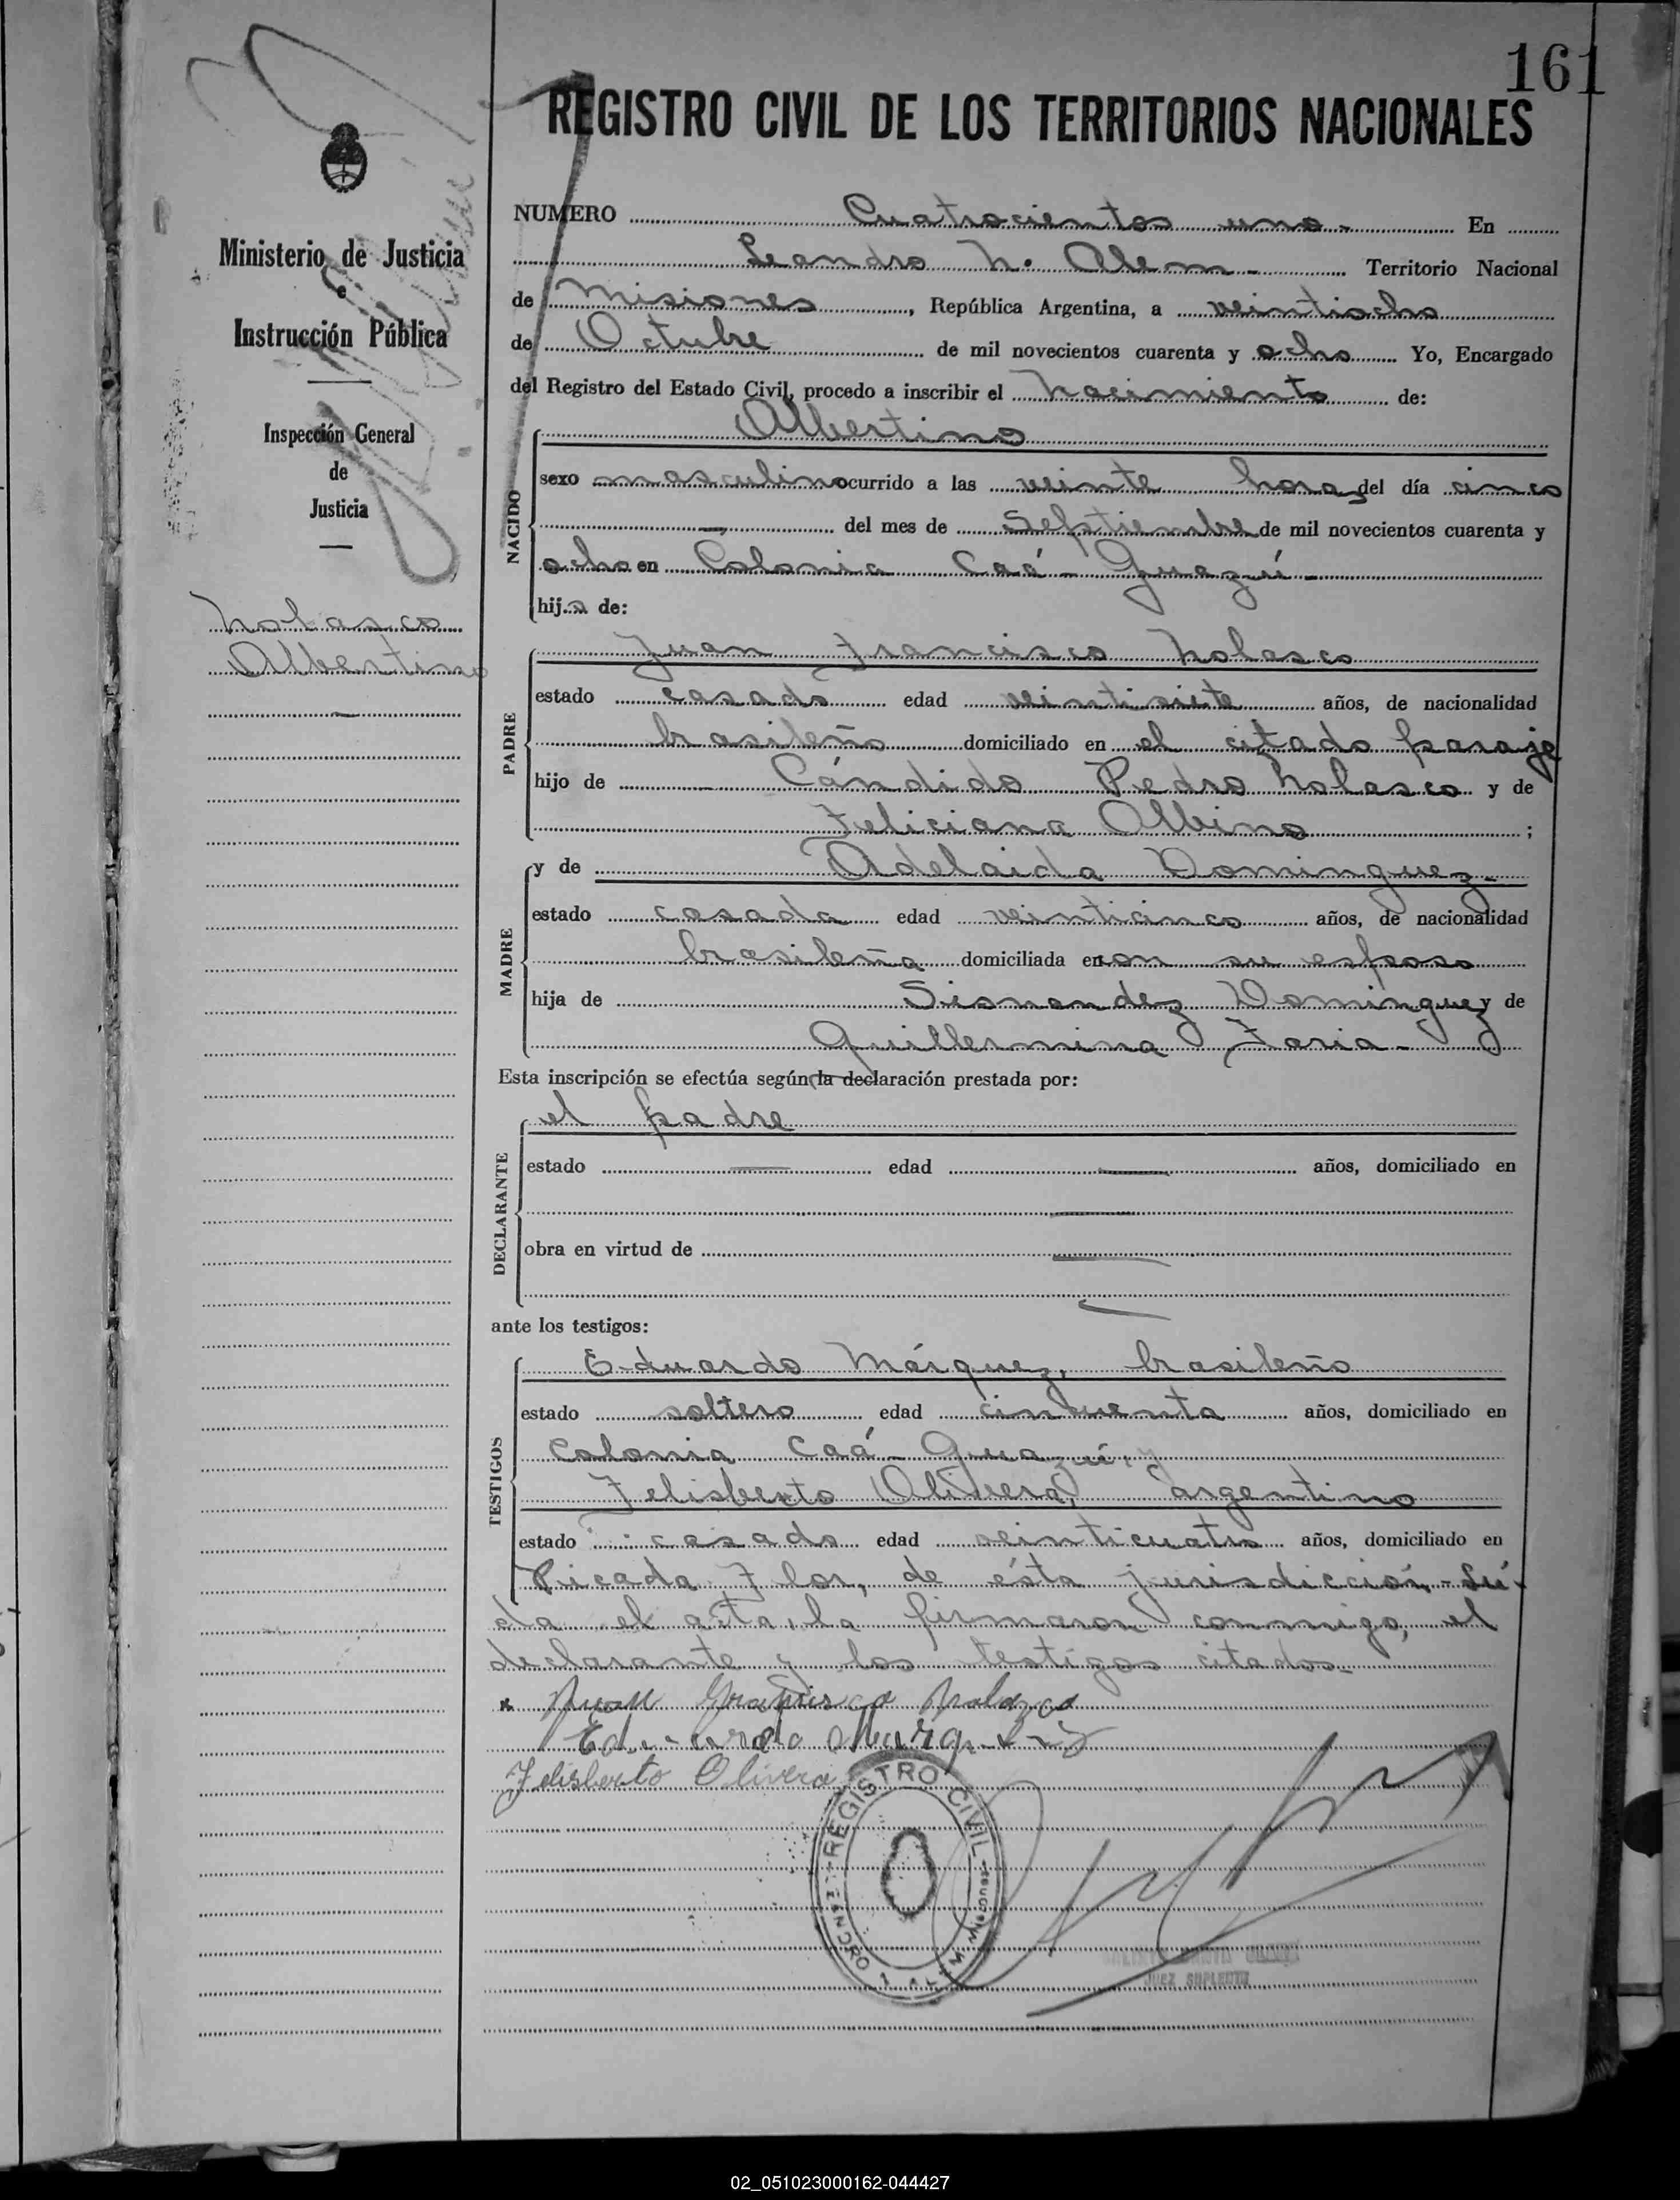 161
REGISTRO CIVIL DE LOS TERRITORIOS NACIONALES
Ministerio de Justicia
e
Instrucción Pública
Inspección General
de
Justicia
Nolasco
Albertino
NUMERO Cuatrocientos uno.- En
Leandro N. Alem.- Territorio Nacional
de Misiones, República Argentina, a veintiocho
de Octubre de mil novecientos cuarenta y ocho Yo, Encargado
del Registro del Estado Civil, procedo a inscribir el Nacimiento de:
NACIDO
Albertino
sexo masculino ocurrido a las veinte horas del día cinco
del mes de Septiembre de mil novecientos cuarenta y
ocho en Colonia Caá-Guazú.-
hijo de:
PADRE
Juan Francisco Nolasco
estado casado edad veintisiete años, de nacionalidad
brasileño domiciliado en el citado paraje
hijo de Cándido Pedro Nolasco y de
Feliciana Albino ;
MADRE
y de Adelaida Dominguez.-
estado casada edad veinticinco años, de nacionalidad
brasileña domiciliada en con su esposo
hija de Dominguez y de
Guillermina Faria.-
Esta inscripción se efectúa según la declaración prestada por:
DECLARANTE
el padre
estado — edad — años, domiciliado en
obra en virtud de —
ante los testigos:
TESTIGOS
Eduardo Márquez, brasileño
estado soltero edad cincuenta años, domiciliado en
Colonia Caá-Guazú, y
Felisberto Olivera, argentino
estado casado edad veinticuatro años, domiciliado en
Picada Flor, de ésta jurisdicción.- Leí-
da el acta, la firmaron conmigo, el
declarante y los testigos citados.-
Juan Francisco Nolazco
Eduardo Marquez
Felisberto Olivera
REGISTRO CIVIL
LEANDRO N. ALEM
JUEZ SUPLENTE
02_051023000162-044427